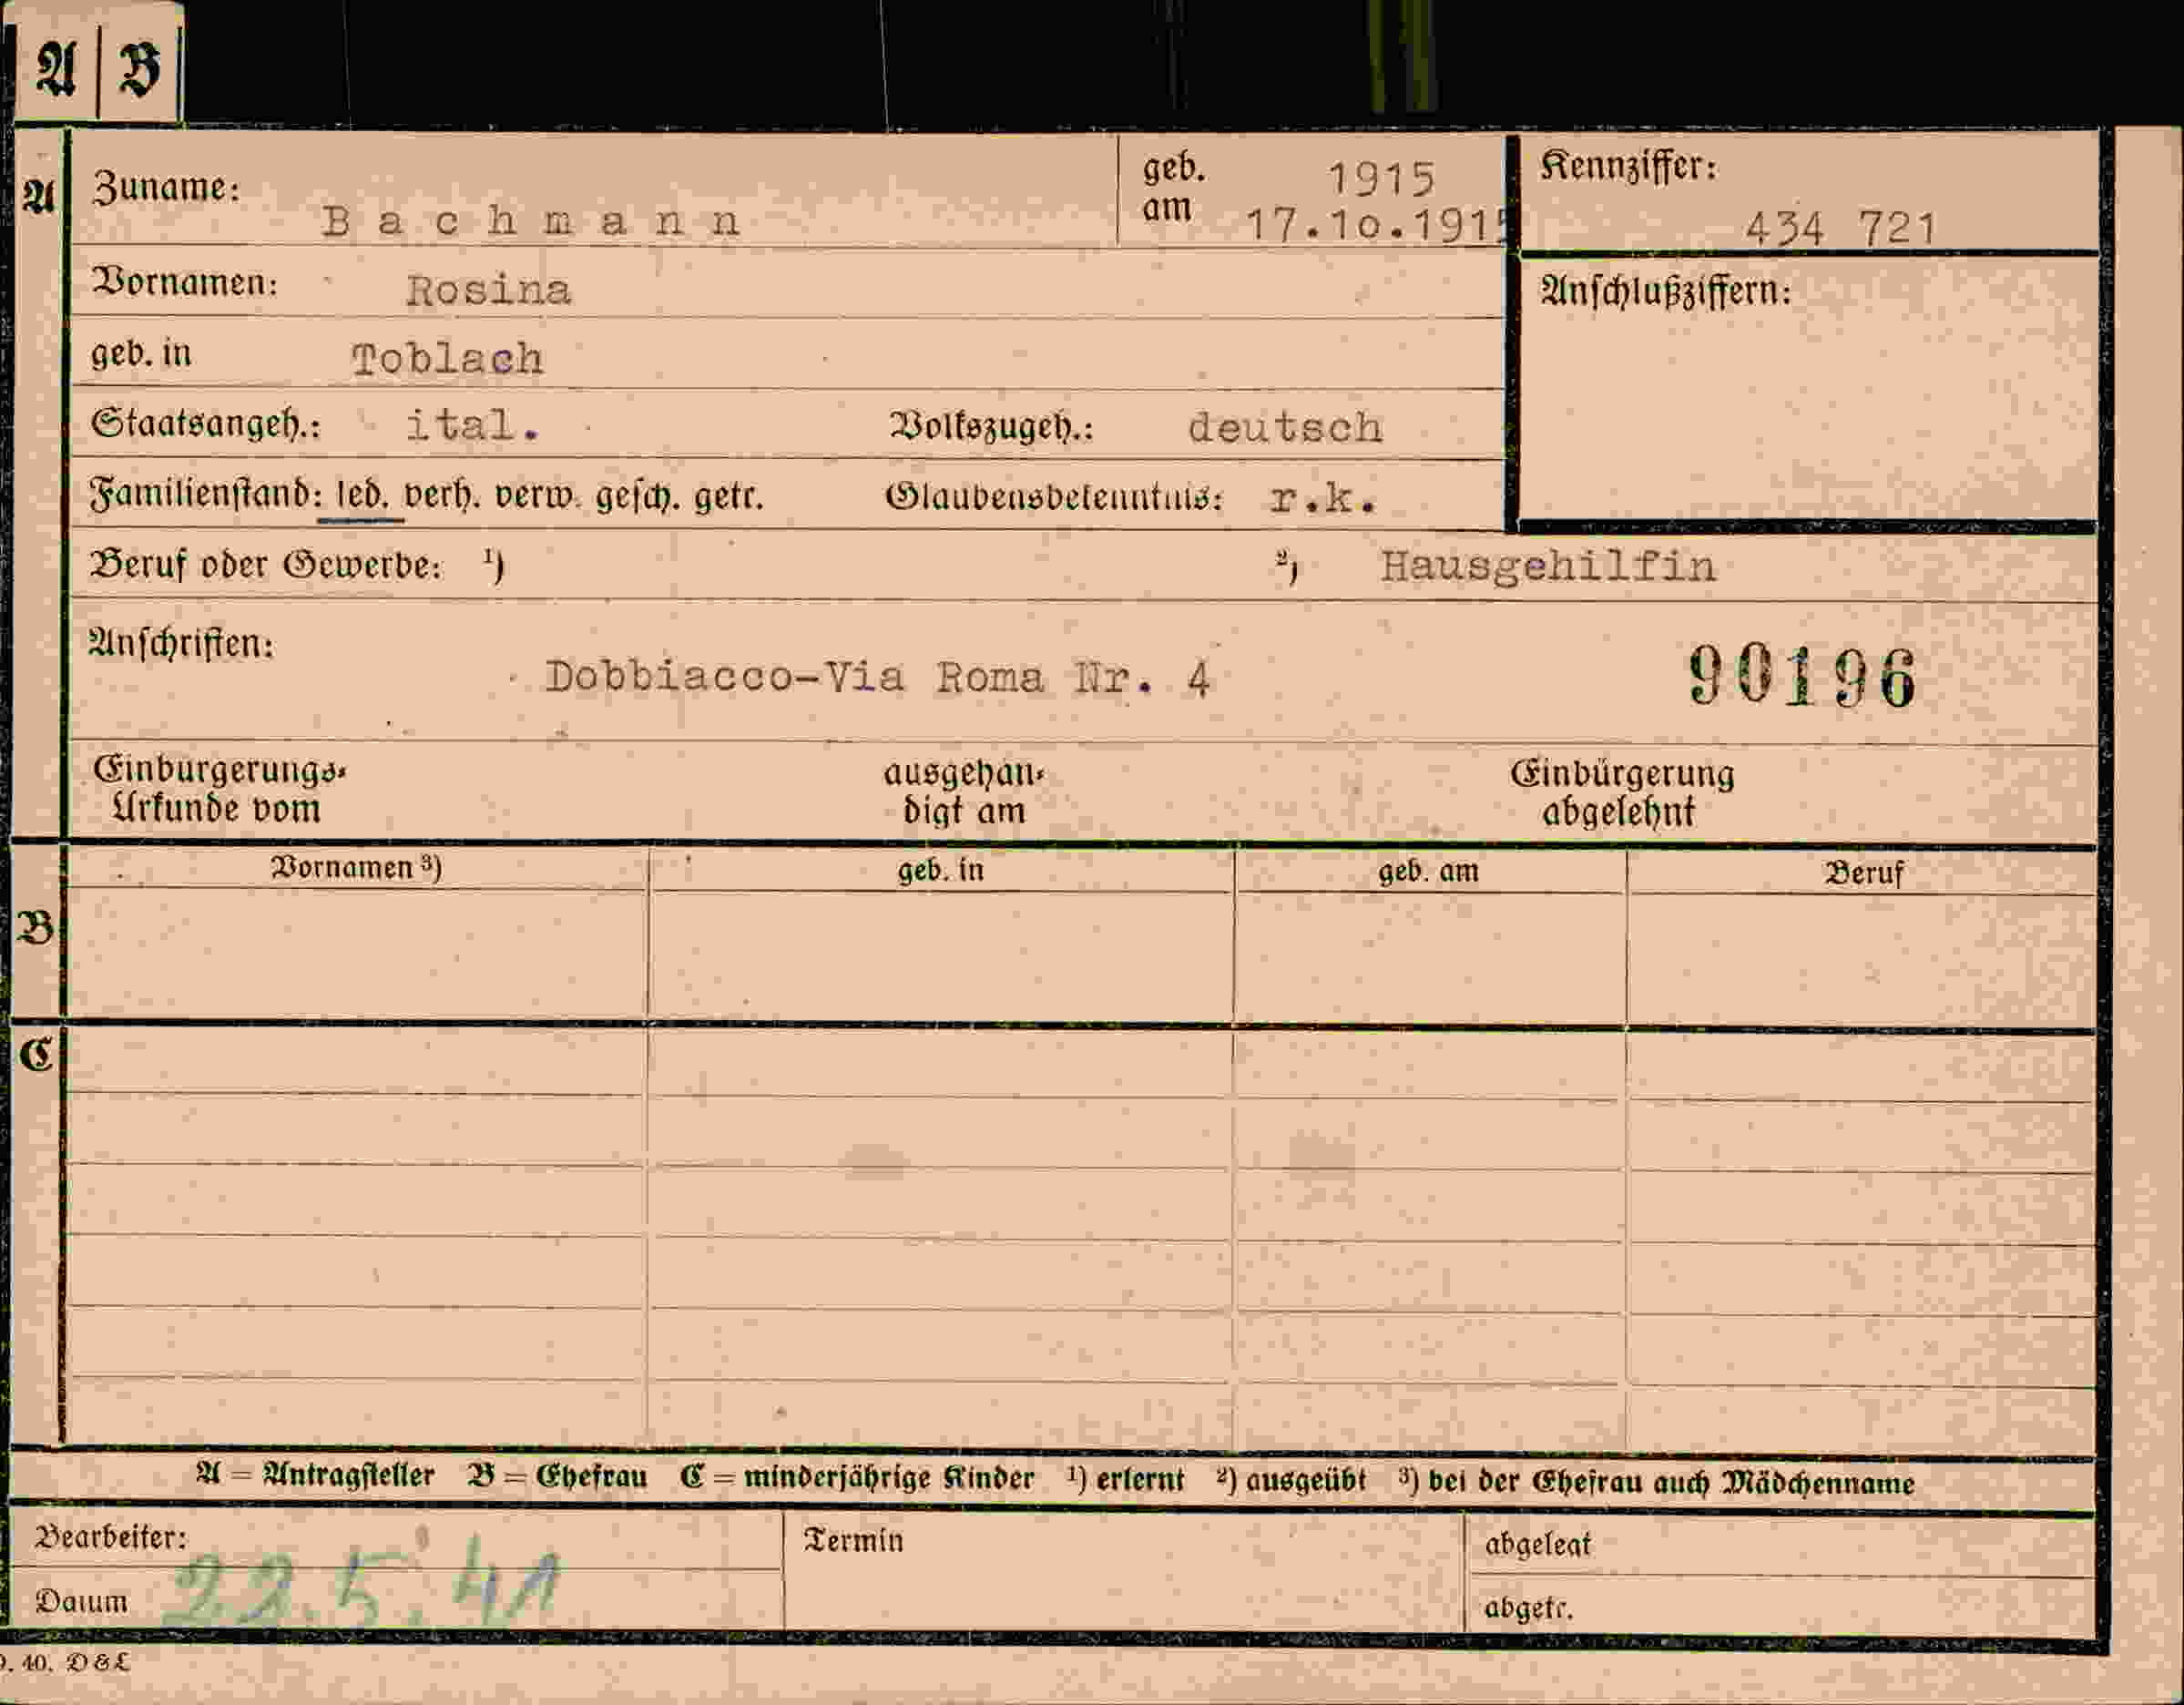 A | B
A Zuname: Bachmann geb. am 1915 17.10.1915 Kennziffer: 434 721
Vornamen: Rosina Anschlußziffern:
geb. in Toblach
Staatsangeh.: ital. Volkszugeh.: deutsch
Familienstand: led. verh. verw. gesch. getr. Glaubensbekenntnis: r.k.
Beruf oder Gewerbe: ¹) ²) Hausgehilfin
Anschriften: Dobbiacco-Via Roma Nr. 4 90196
Einbürgerungs- ausgehän- Einbürgerung
Urkunde vom digt am abgelehnt
Vornamen ³) geb. in geb. am Beruf
B
C
A = Antragsteller B = Ehefrau C = minderjährige Kinder ¹) erlernt ²) ausgeübt ³) bei der Ehefrau auch Mädchenname
Bearbeiter: Termin abgelegt
Datum 22.5.41 abgetr.
. 40. D & L